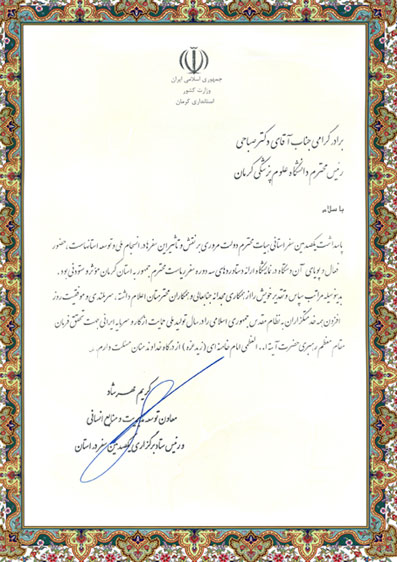 جمهوری اسلامی ایران
وزارت کشور
استانداری کرمان
برادر گرامی جناب آقای دکتر صباحی
رئیس محترم دانشگاه علوم پزشکی کرمان
با سلام
پاسداشت یکصدمین سفر استانی هیات محترم دولت مروری بر نقش و تاثیر این سفرها در انسجام ملی و توسعه استانهاست. حضور
فعال و پویای آن دستگاه در نمایشگاه ارائه دستاوردهای سه دوره سفر ریاست محترم جمهور به استان کرمان موثر و ستودنی بود.
بدینوسیله مراتب سپاس و تقدیر خویش را از همکاری مجدانه جنابعالی و همکاران محترمتان اعلام داشته. سربلندی و موفقیت روز
افزون همه خدمتگزاران به نظام مقدس جمهوری اسلامی را در سال تولید ملی حمایت از کار و سرمایه ایرانی جهت تحقق فرمان
مقام معظم رهبری حضرت آیة ا... العظمی امام خامنه ای (زید عزه) از درگاه خداوند منان مسئلت دارم..
کریم مهرشاد
معاون توسعه مدیریت و منابع انسانی
و رئیس ستاد برگزاری یکصدمین سفر در استان